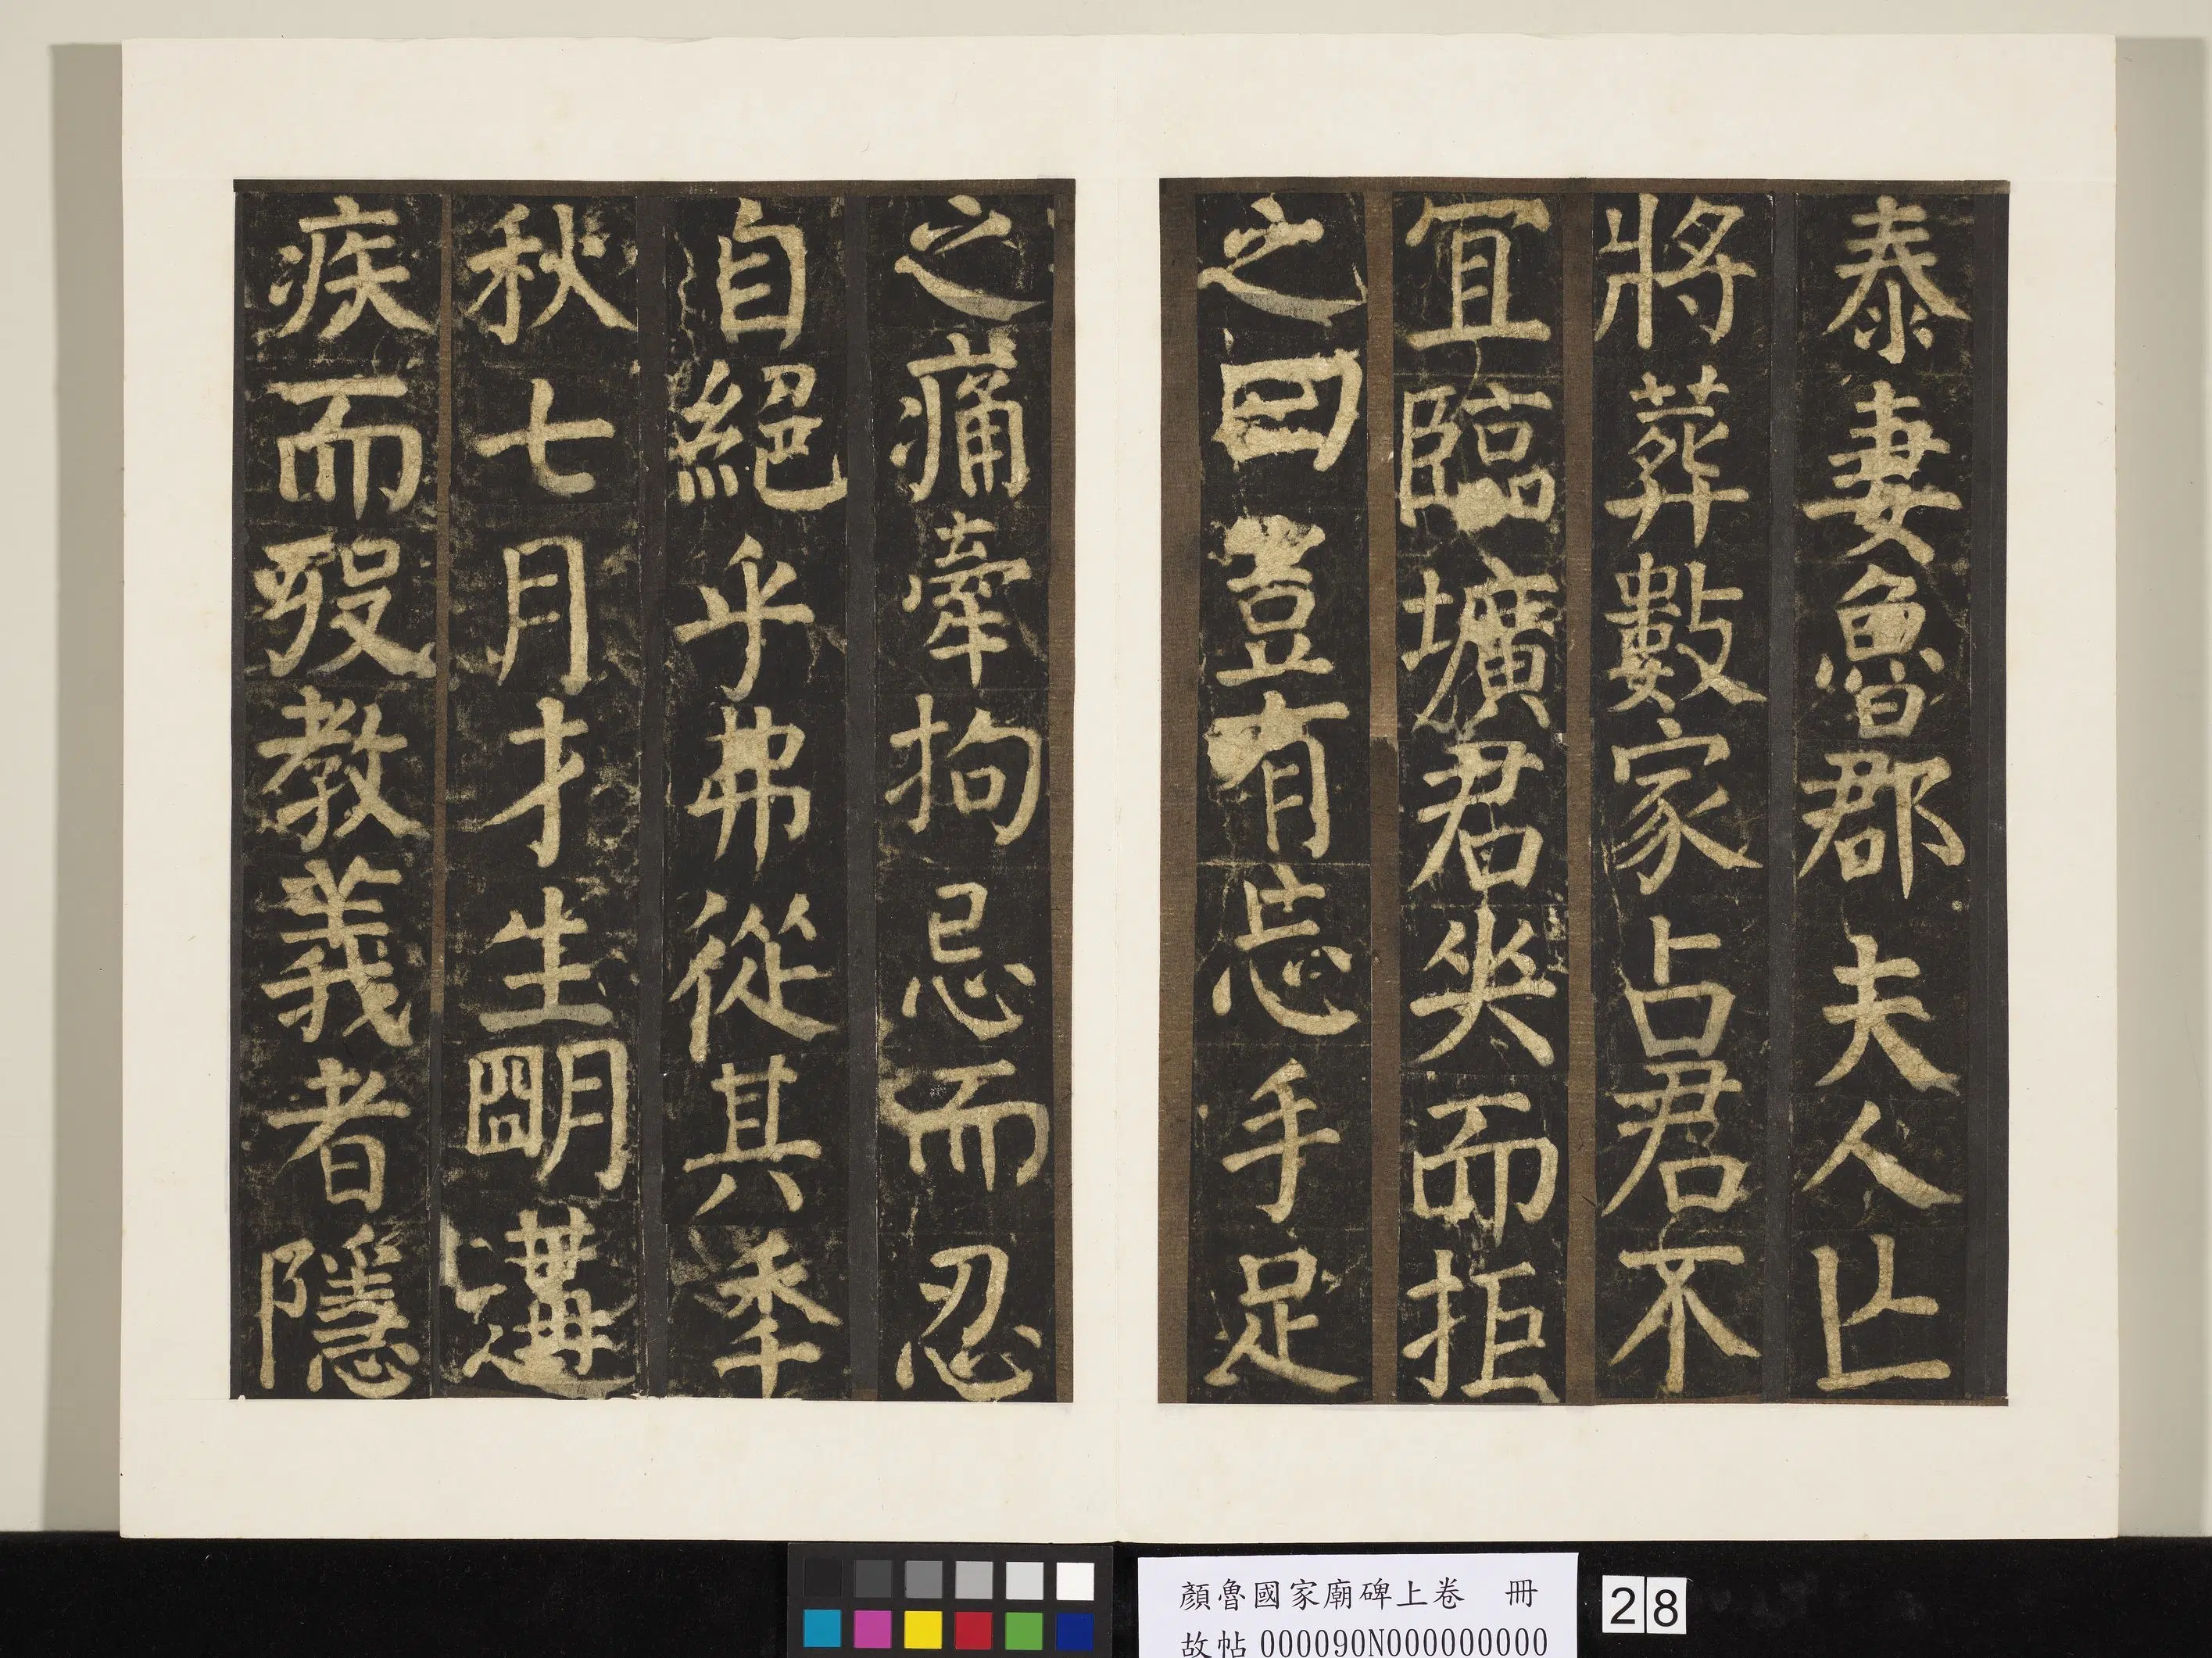 泰妻魯郡夫人亡
將葬數家占君不
冝臨壙君哭而拒
之曰豈有忘手足
之痛牽拘忌而忍
自絕乎弗從其季
秋七月才生明遘
疾而歿教義者隱
顏魯國家廟碑上卷 冊
故帖000090N000000000
28